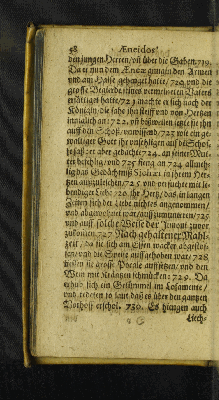 58 Æneidos
den jungen Herren/ oft über die Gaben/ 719.
Da er nun dem Æneæ gnug in den Armen
und am Halse gehangen hatte/ 720. und die
grosse Begierde seines vermeinten Vaters
ersättiget hatte/ 721. machte er sich nach der
Königin/ die sahe ihn steiff und von Hertzen
inniglich an: 722. oft bißweilen setzte sie ihn
auff den Schoß/ unwissend/ 723. wie ein ge-
waltiger Gott ihr unschlagen auf dē Schoß
724. an seiner Mut-
ter befehlig/ und 725. fieng an 724 allmeh-
lig das Gedächtniß Sichæi in ihrem Her-
tzen auszuleschen/ 725. und versuchte mit le-
bendiger Liebe 726. ihr Hertz/ das in langen
Zeiten sich der Liebe nichtes angenommen/
und abgewohnet war/ auffzumuntern/ 725.
und auff solche Weise der Junoni zuvor
zukommen. 727. Nach gehaltener Mahl-
zeit/ da sie sich am Essen wacker abgeloß-
ten/ und die Speise auffgehoben war/ 728
liessen sie grosse Pocale auffsetzen/ und den
Wein mit Kräntzen schmücken: 729. Da
erhub sich ein Getümmel im Losamente/
und redeten so laut/ daß es über den gantzen
Vorhoff erschol. 730. Es hiengen auch
Liech-